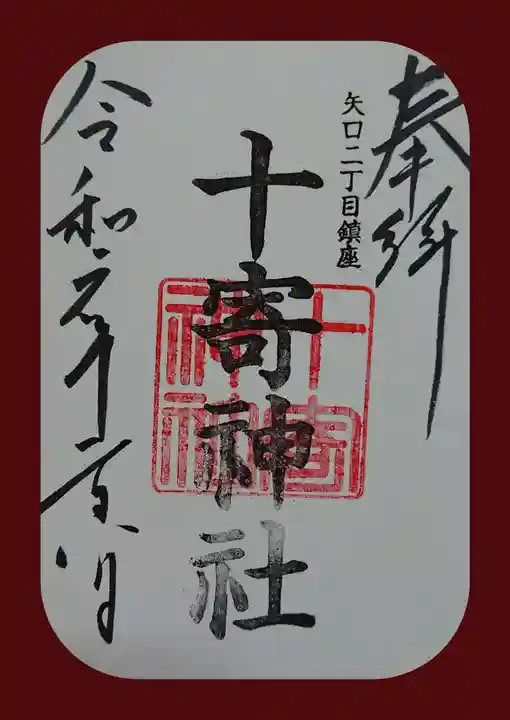 奉拝
矢口二丁目鎮座
十寄神社
十寄
神社
令和元年夏詣